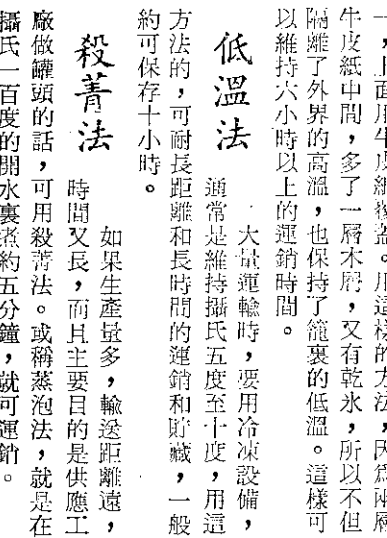 上面用牛皮紙覆蓋。用這樣的方法，因爲兩層
牛皮紙中間，多了一層木屑，又有乾氷，所以不但
隔離了外界的高溫，也保持了籠裏的低溫。這樣可
以維持六小時以上的運銷時間。
低溫法
大量運輸時，要用冷凍設備，
通常是維持攝氏五度至十度，用這
方法的，可耐長距離和長時間的運銷和貯藏，一般
約可保存十小時。
殺菁法
如果生產量多，輸送距離遠，
時間又長，而且主要目的是供應工
廠做罐頭的話，可用殺菁法。或稱蒸泡法，就是在
攝氏一百度的開水裏煮約五分鐘，就可運銷。